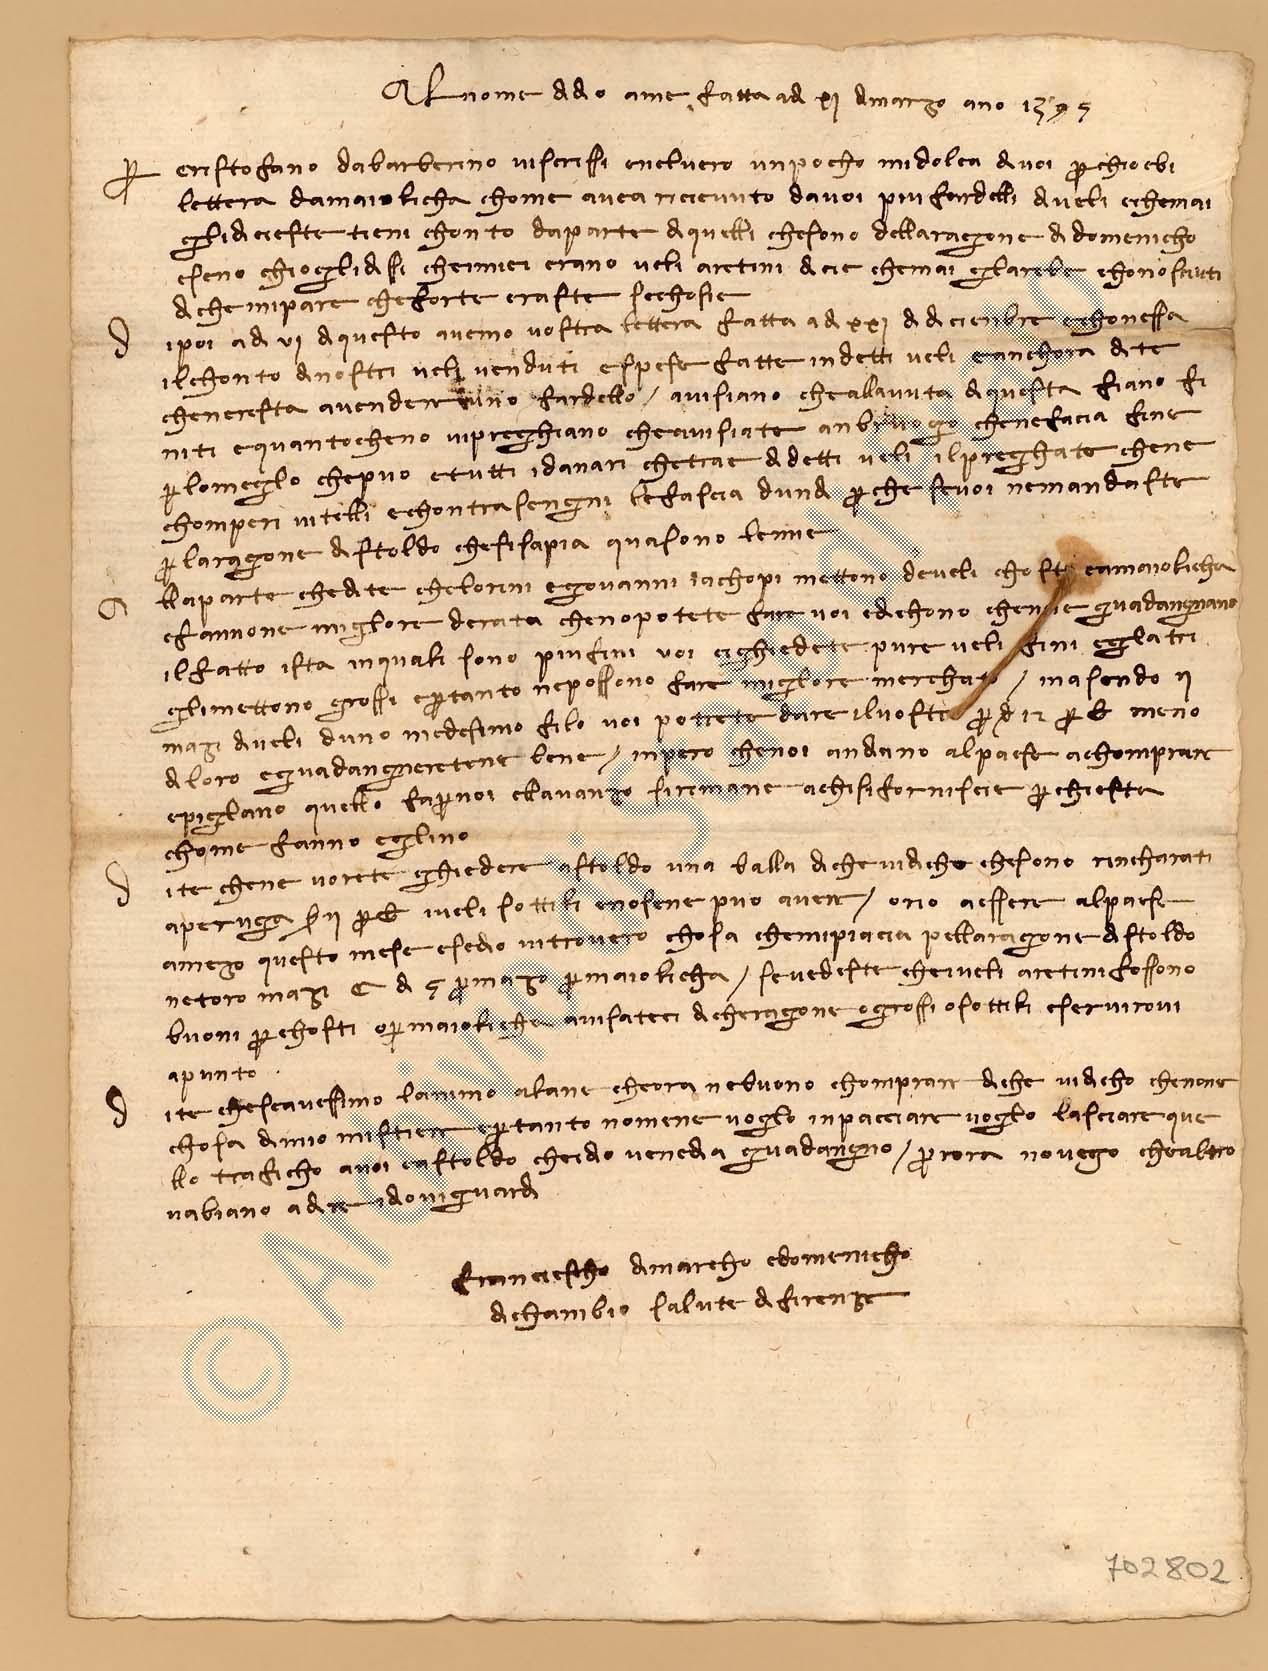 Al nome di dio ame fatta adi xi di marzo ano 1395
Per cristofano dabarberino vi scrissi enelvero unpocho midolea divoi perchio ebi
lettera damaiolicha chome avea ricievuto davoi piu fardelli di veli echemai
gli diciefte tieni chonto daparte di quelli chesono dellaragone di domenicho
eseno chioglidissi cheimiei erano veli aretini dicie chemai glarebe chonosciuti
diche mipare cheforte erafte sechosie
D ipoi adi vi di questo avemo vostra lettera fatta adi xxi di diciembre echonessa
ilchonto dinostri veli venduti espese fatte indetti veli eanchora dite
chenerefta avendere uno fardello / avisiano cheallavuta di questa siano fi
niti equantocheno vipreghiano cheavisiate anbruogo chenefacia fine
per lomeglo chepuo etutti idanari chetrae di detti veli ilpreghate chene
chomperi vitelli echontrasengni lefascia dundi perche sevoi nemandaste
per laragone di stoldo chesisapia quasono lenne
A llaparte chedite chelorini egovanni iachopi mettono develi chosti eamaiolicha
efannone miglore derata chenopotete fare voi edichono chenne guadangnano
ilfatto ista inquali sono piufini voi cichiedete pure veli fini eglatri
glimettono grossi epertanto nepossono fare miglore merchato / masendo ii
mazi di veli duno medesimo filo voi potrete dare ilvostro per d 12 per lb meno
diloro eguadangneretene bene / inpero chenoi andiano alpaese achomprare
epiglano quello faper noi elavanzo sirimane achisiforniscie perchiefte
chome fanno eglino
D ite chene vorete chiedere astoldo una balla diche vidicho chesono rincharati
aperuga s ii per lb iveli sottili enosene puo avere / ono aessere alpaese
amezo questo mese esedio vitrovero chosa chemipiacia pellaragone di stoldo
netoro mazi C di 5 per mazo per maiolicha / sevedeste cheiveli aretini fossono
buoni per chosti oper maiolicha avisateci dicheragone ogrossi osottili eservirovi
apunto
D ite cheseavessimo lanimo alane cheora nebuono chomprare diche vidicho chenone
chosa dimio mistiere epertanto nomene voglo inpacciare voglo lasciare que
llo traficho avoi eastoldo cheidio venedia guadangno / per ora novego chealtro
vabiano adire idovi guardi
Franciescho dimarcho edomenicho
dichambio salute di firenze
702802
© Archivio di Stato di Prato